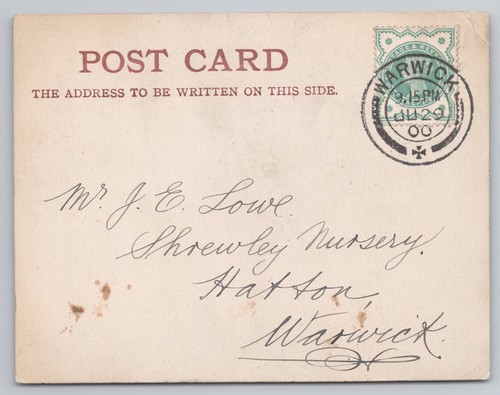 POST CARD
THE ADDRESS TO BE WRITTEN ON THIS SIDE.
POSTAGE & REVENUE
WARWICK
9.15PM
JU 29
00
Mr J. E. Lowe.
Shrewley Nursery.
Hatton,
Warwick.